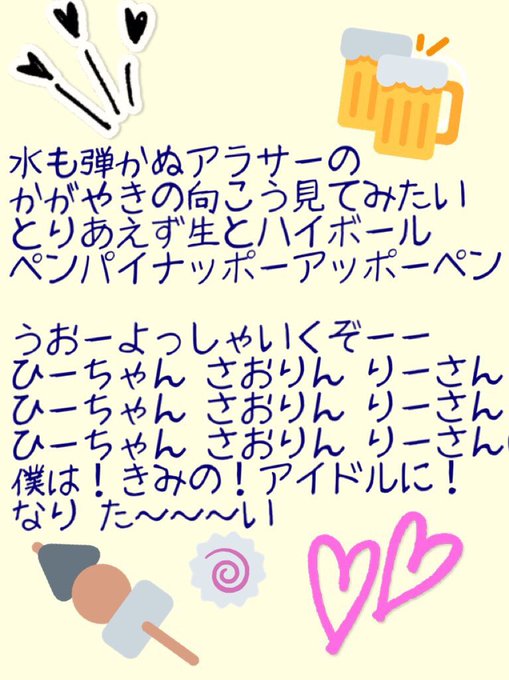 水も弾かぬアラサーの
かがやきの向こう見てみたい
とりあえず生とハイボール
ペンパイナッポーアッポーペン
うおーよっしゃいくぞーー
ひーちゃん さおりん りーさん
ひーちゃん さおりん りーさん
ひーちゃん さおりん りーさん
僕は！きみの！アイドルに！
なり た〜〜〜い